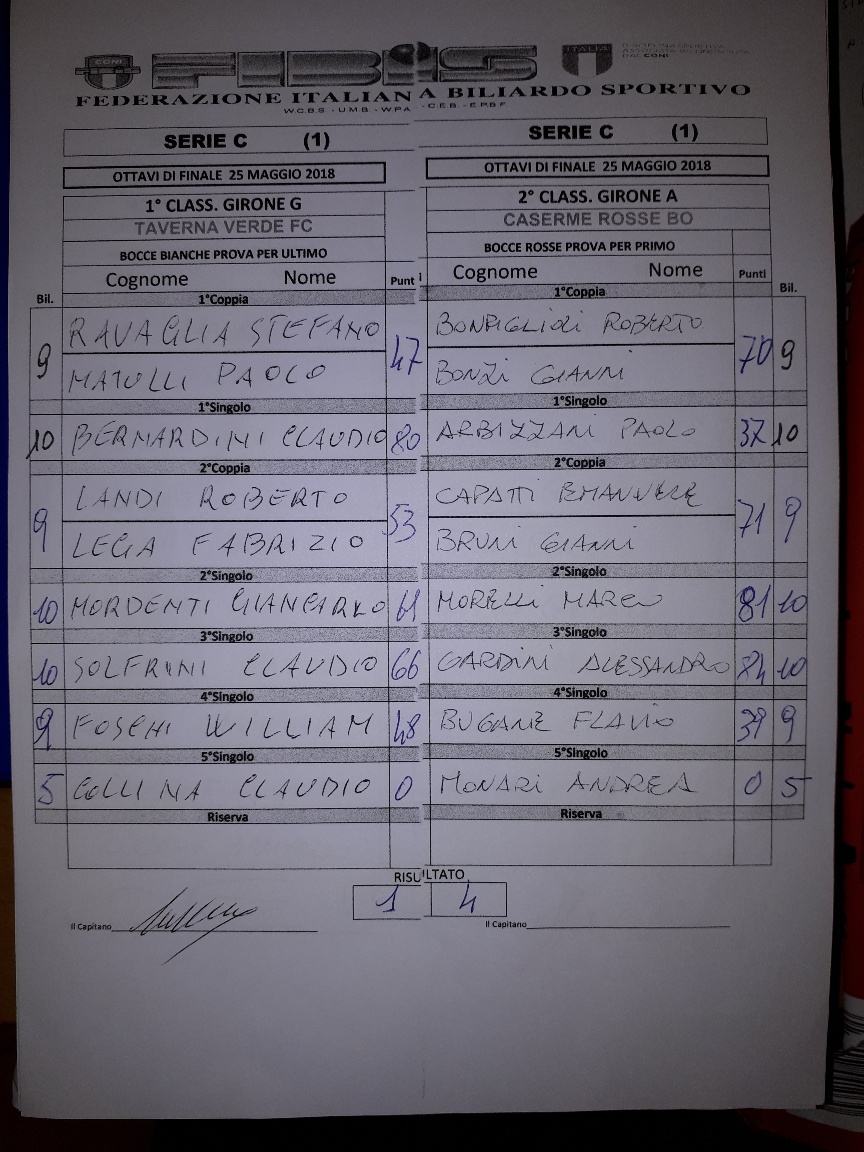 CONI
FIBiS
ITALIA
FEDERAZIONE ITALIANA BILIARDO SPORTIVO
W.C.B.S - U.M.B - W.P.A - C.E.B. - E.P.B.F
SERIE C (1)
OTTAVI DI FINALE 25 MAGGIO 2018
1° CLASS. GIRONE G
TAVERNA VERDE FC
BOCCE BIANCHE PROVA PER ULTIMO
Bil. Cognome Nome Punti
1°Coppia
9 RAVAGLIA STEFANO 47
MATULLI PAOLO
1°Singolo
10 BERNARDINI CLAUDIO 80
2°Coppia
9 LANDI ROBERTO 53
LEGA FABRIZIO
2°Singolo
10 MORDENTI GIANCARLO 61
3°Singolo
10 SOLFRINI CLAUDIO 66
4°Singolo
9 FOSCHI WILLIAM 48
5°Singolo
5 COLLINA CLAUDIO 0
Riserva
SERIE C (1)
OTTAVI DI FINALE 25 MAGGIO 2018
2° CLASS. GIRONE A
CASERME ROSSE BO
BOCCE ROSSE PROVA PER PRIMO
Cognome Nome Punti Bil.
1°Coppia
BONFIGLIOLI ROBERTO 70 9
BONZI GIANNI
1°Singolo
ARBIZZANI PAOLO 37 10
2°Coppia
CAPATTI EMANUELE 71 9
BRUNI GIANNI
2°Singolo
MORELLI MARCO 81 10
3°Singolo
GARDINI ALESSANDRO 84 10
4°Singolo
BUGANE FLAVIO 39 9
5°Singolo
MONARI ANDREA 0 5
Riserva
RISULTATO
1 4
Il Capitano
Il Capitano